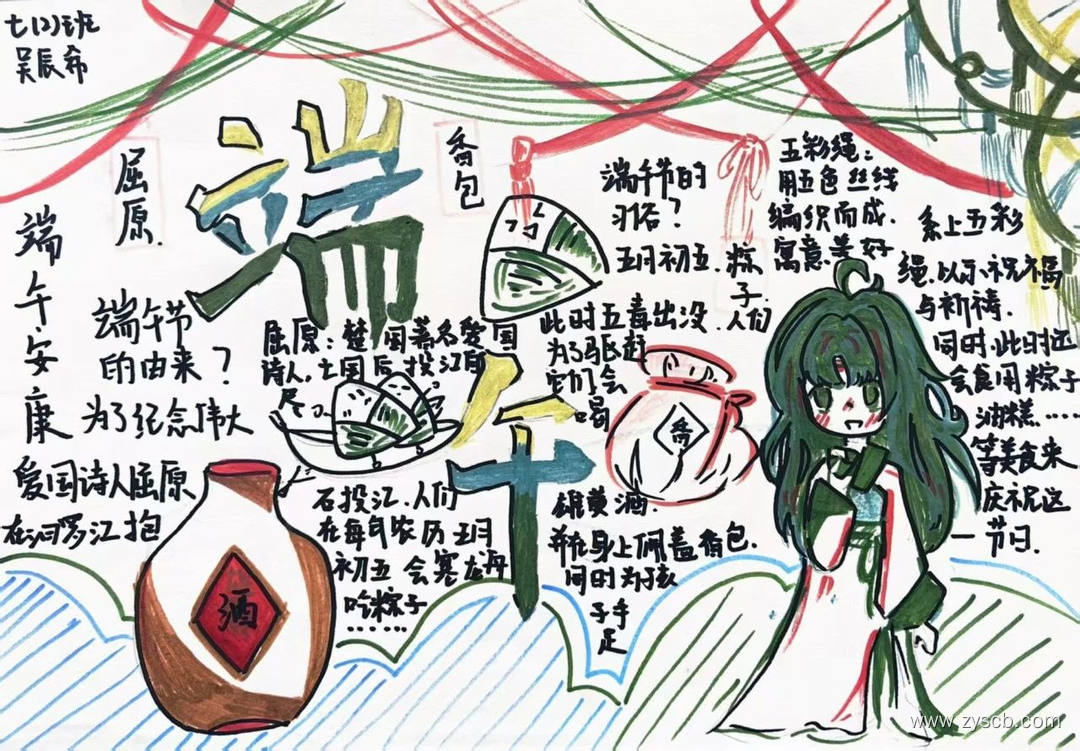 七(2)班
吴辰希
端午
端午安康
屈原
端午节
的由来？
为了纪念伟大
爱国诗人屈原
在汨罗江抱
石投江.人们
在每年农历五月
初五会赛龙舟
吃粽子
……
屈原：楚国著名爱国
诗人.亡国后投江自
尽
香包
端午节的
习俗？
五月初五.
此时五毒出没.
为了驱赶
它们会
喝
雄黄酒.
并在身上佩戴香包.
同时为孩
子手
足
粽
子.
人们
五彩绳：
用五色丝线
编织而成.
寓意美好
系上五彩
绳.以示祝福
与祈祷.
同时.此时还
会食用粽子
油糕……
等美食来
庆祝这
一节日.
酒
香
www.zyscb.com